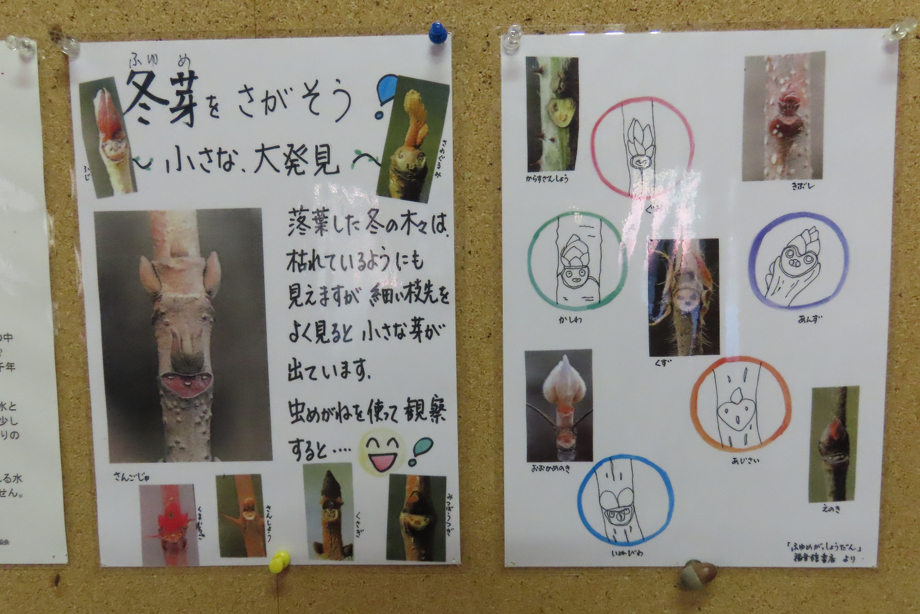 ふゆめ
冬芽をさがそう!
~小さな、大発見~
ふじ
さわぐるみ
落葉した冬の木々は、
枯れているようにも
見えますが 細い枝先を
よく見ると 小さな芽が
出ています。
虫めがねを使って観察
すると‥‥
さんごじゅ
さんしょう
くさぎ
みつばうつぎ
からすざんしょう
きはだ
かしわ
くず
あんず
おおかめのき
あじさい
いぬびわ
えのき
「ふゆめがっしょうだん」
福音館書店 より
中
千年
水と
少し
りの
る水
せん。